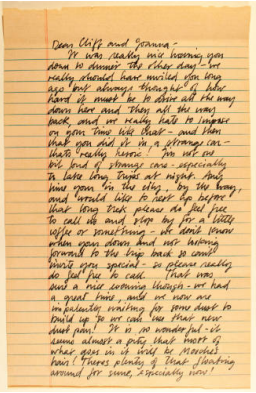 Dear Cliff and Joanna -
It was really nice having you
down to dinner the other day - we
really should have invited you long
ago but always thought of how
hard it must be to drive all the way
down here and then all the way
back, and we really hate to impose
on your time like that - and then
that you did it in a strange car -
thats really heroic! I'm not one
fond of strange cars - especially
in late long trips at night. Any
time your in the city, by the way,
and would like to rest up before
that long trek please do feel free
to call us and stop by for a little
coffee or something - we don't know
when your down and not looking
forward to the trip back so can't
invite you special - so please really
do feel free to call. That was
sure a nice evening though - we had
a great time, and we now are
impatiently waiting for some dust to
build up so we can use that new
dust pan! It is so wonderful - it
seems almost a pity that most of
what goes in it will be
hair! Theres plenty of that floating
around for sure, especially now!